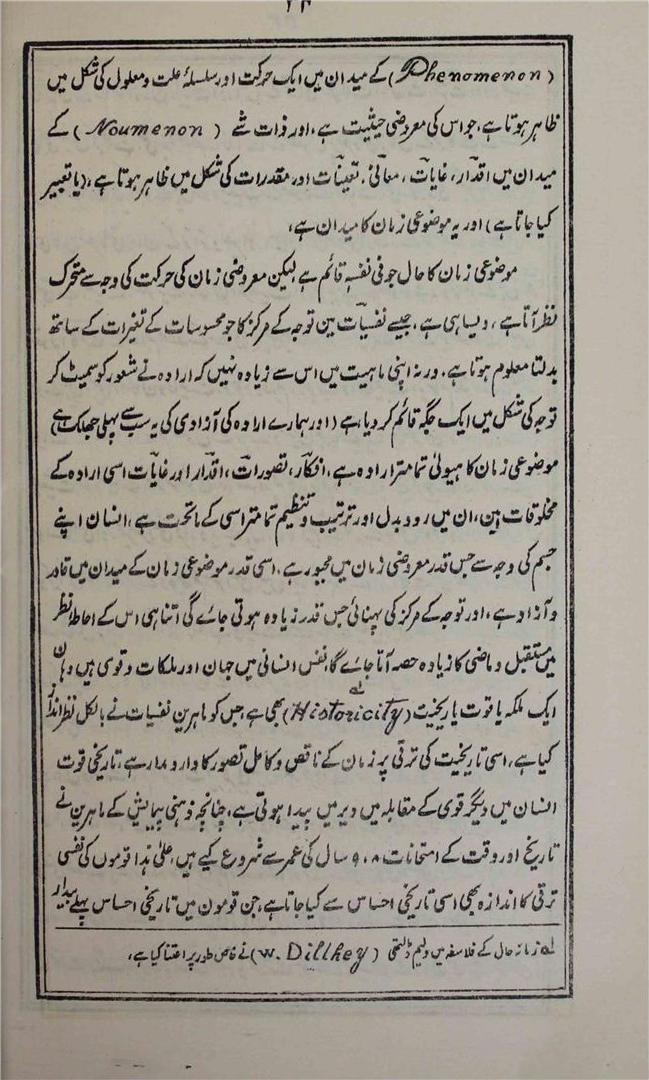 (Phenomenon) کے میدان میں ایک حرکت اور سلسلۂ علت و معلول کی شکل میں
ظاہر ہوتا ہے، جو اس کی معروضی حیثیت ہے، اور ذات شے (Noumenon) کے
میدان میں اقدار، غایات، معانی، تعینات اور مقدرات کی شکل میں ظاہر ہوتا ہے، (یا تعبیر
کیا جاتا ہے) اور یہ موضوعی زمان کا میدان ہے،
موضوعی زمان کا حال جو فی نفسہٖ قائم ہے لیکن معروضی زمان کی حرکت کی وجہ سے متحرک
نظر آتا ہے، ویسا ہی ہے، جیسے نفسیات مین توجہ کے مرکز کا جو محسوسات کے تغیرات کے ساتھ
بدلتا معلوم ہوتا ہے، ورنہ اپنی ماہیت میں اس سے زیادہ نہیں کہ ارادہ نے شعور کو سمیٹ کر
توجہ کی شکل میں ایک جگہ قائم کر دیا ہے (اور ہمارے ارادہ کی آزادی کی یہ سب سے پہلی جھلک ہے)
موضوعی زمان کا ہیولیٰ تمامتر ارادہ ہے، افکار، تصورات، اقدار اور غایات اسی ارادہ کے
مخلوقات ہین، ان میں رد و بدل اور ترتیب و تنظیم تمامتر اسی کے ماتحت ہے، انسان اپنے
جسم کی وجہ سے جس قدر معروضی زمان میں مجبور ہے، اسی قدر موضوعی زمان کے میدان میں قادر
و آزاد ہے، اور توجہ کے مرکز کی پہنائی جس قدر زیادہ ہوتی جائے گی اتنا ہی اس کے احاطۂ نظر
میں مستقبل و ماضی کا زیادہ حصہ آتا جائے گا، نفس انسانی میں جہان اور ملکات و قوی ہیں وہان
ایک ملکہ یا قوت یا ریخیت (Historicity)لہ بھی ہے، جس کو ماہرین نفسیات نے بالکل نظر انداز
کیا ہے، اسی تاریخیت کی ترقی پر زمان کے ناقص و کامل تصور کا دار و مدار ہے، تاریخی قوت
انسان میں دیگر قوی کے مقابلہ میں دیر میں پیدا ہوتی ہے، چنانچہ ذہنی پیمایش کے ماہرین نے
تاریخ اور وقت کے امتحانات ۸، ۹ سال کی عمر سے شروع کیے ہیں، علیٰ ہذا قوموں کی نفسی
ترقی کا اندازہ بھی اسی تاریخی احساس سے کیا جاتا ہے، جن قومون میں تاریخی احساس پہلے بیدار
لہ زمانۂ حال کے فلاسفہ میں ولیم ڈلتھی (W. Dillhey) نے خاص طور پر اعتنا کیا ہے،